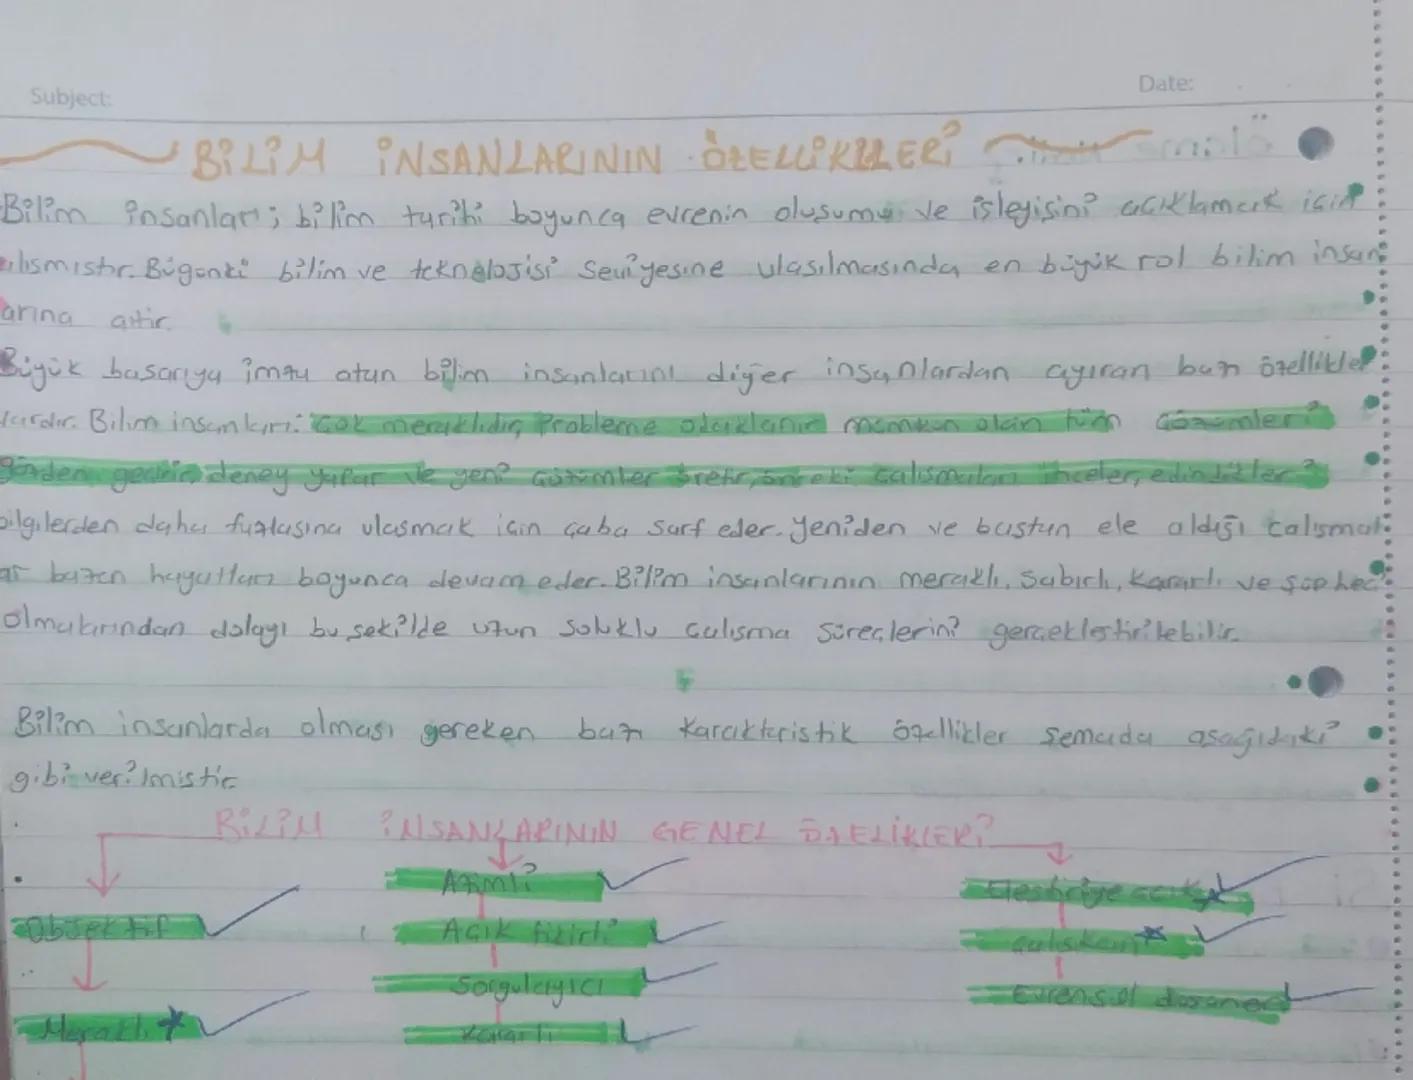 Subject:
Date:
BİLİM İNSANLARININ ÖZELLİKLERİ
Bilim insanları; bilim tarihi boyunca evrenin oluşumu ve işleyişini açıklamak için
alısmıstır. Bugünki bilim ve teknolojisi seviyesine ulasılmasında en büyük rol bilim insan
larına aitir.
Büyük basarıya imza atan bilim insanlarını diğer insanlardan ayıran bazı özellikler
vardır. Bilim insanları: Çok meraklıdır, Probleme odaklanır mümkün olan tüm çözümleri
gözden geçirir, deney yapar ve yeni çözümler üretir, önceki çalısmaları inceler, edindikleri
bilgilerden daha fazlasına ulasmak için çaba sarf eder. Yeniden ve bastan ele aldığı calısmal
ar bazen hayatları boyunca devam eder. Bilim insanlarının meraklı, Sabırlı, Kararlı ve şüpheci
olmalarından dolayı bu sekilde uzun soluklu çalısma süreçlerini gerçeklestirilebilir.
Bilim insanlarda olması gereken bazı karakteristik özellikler semada asağıdaki
gibi verilmistir.
BİLİM İNSANLARININ GENEL ÖZELİKLERİ
Azimli
Eleştiriye acık
Objektif
Açık fikirli
çalıskan
Sorgulayıcı
Evrensel dusunen
Meraklı
Kararlı